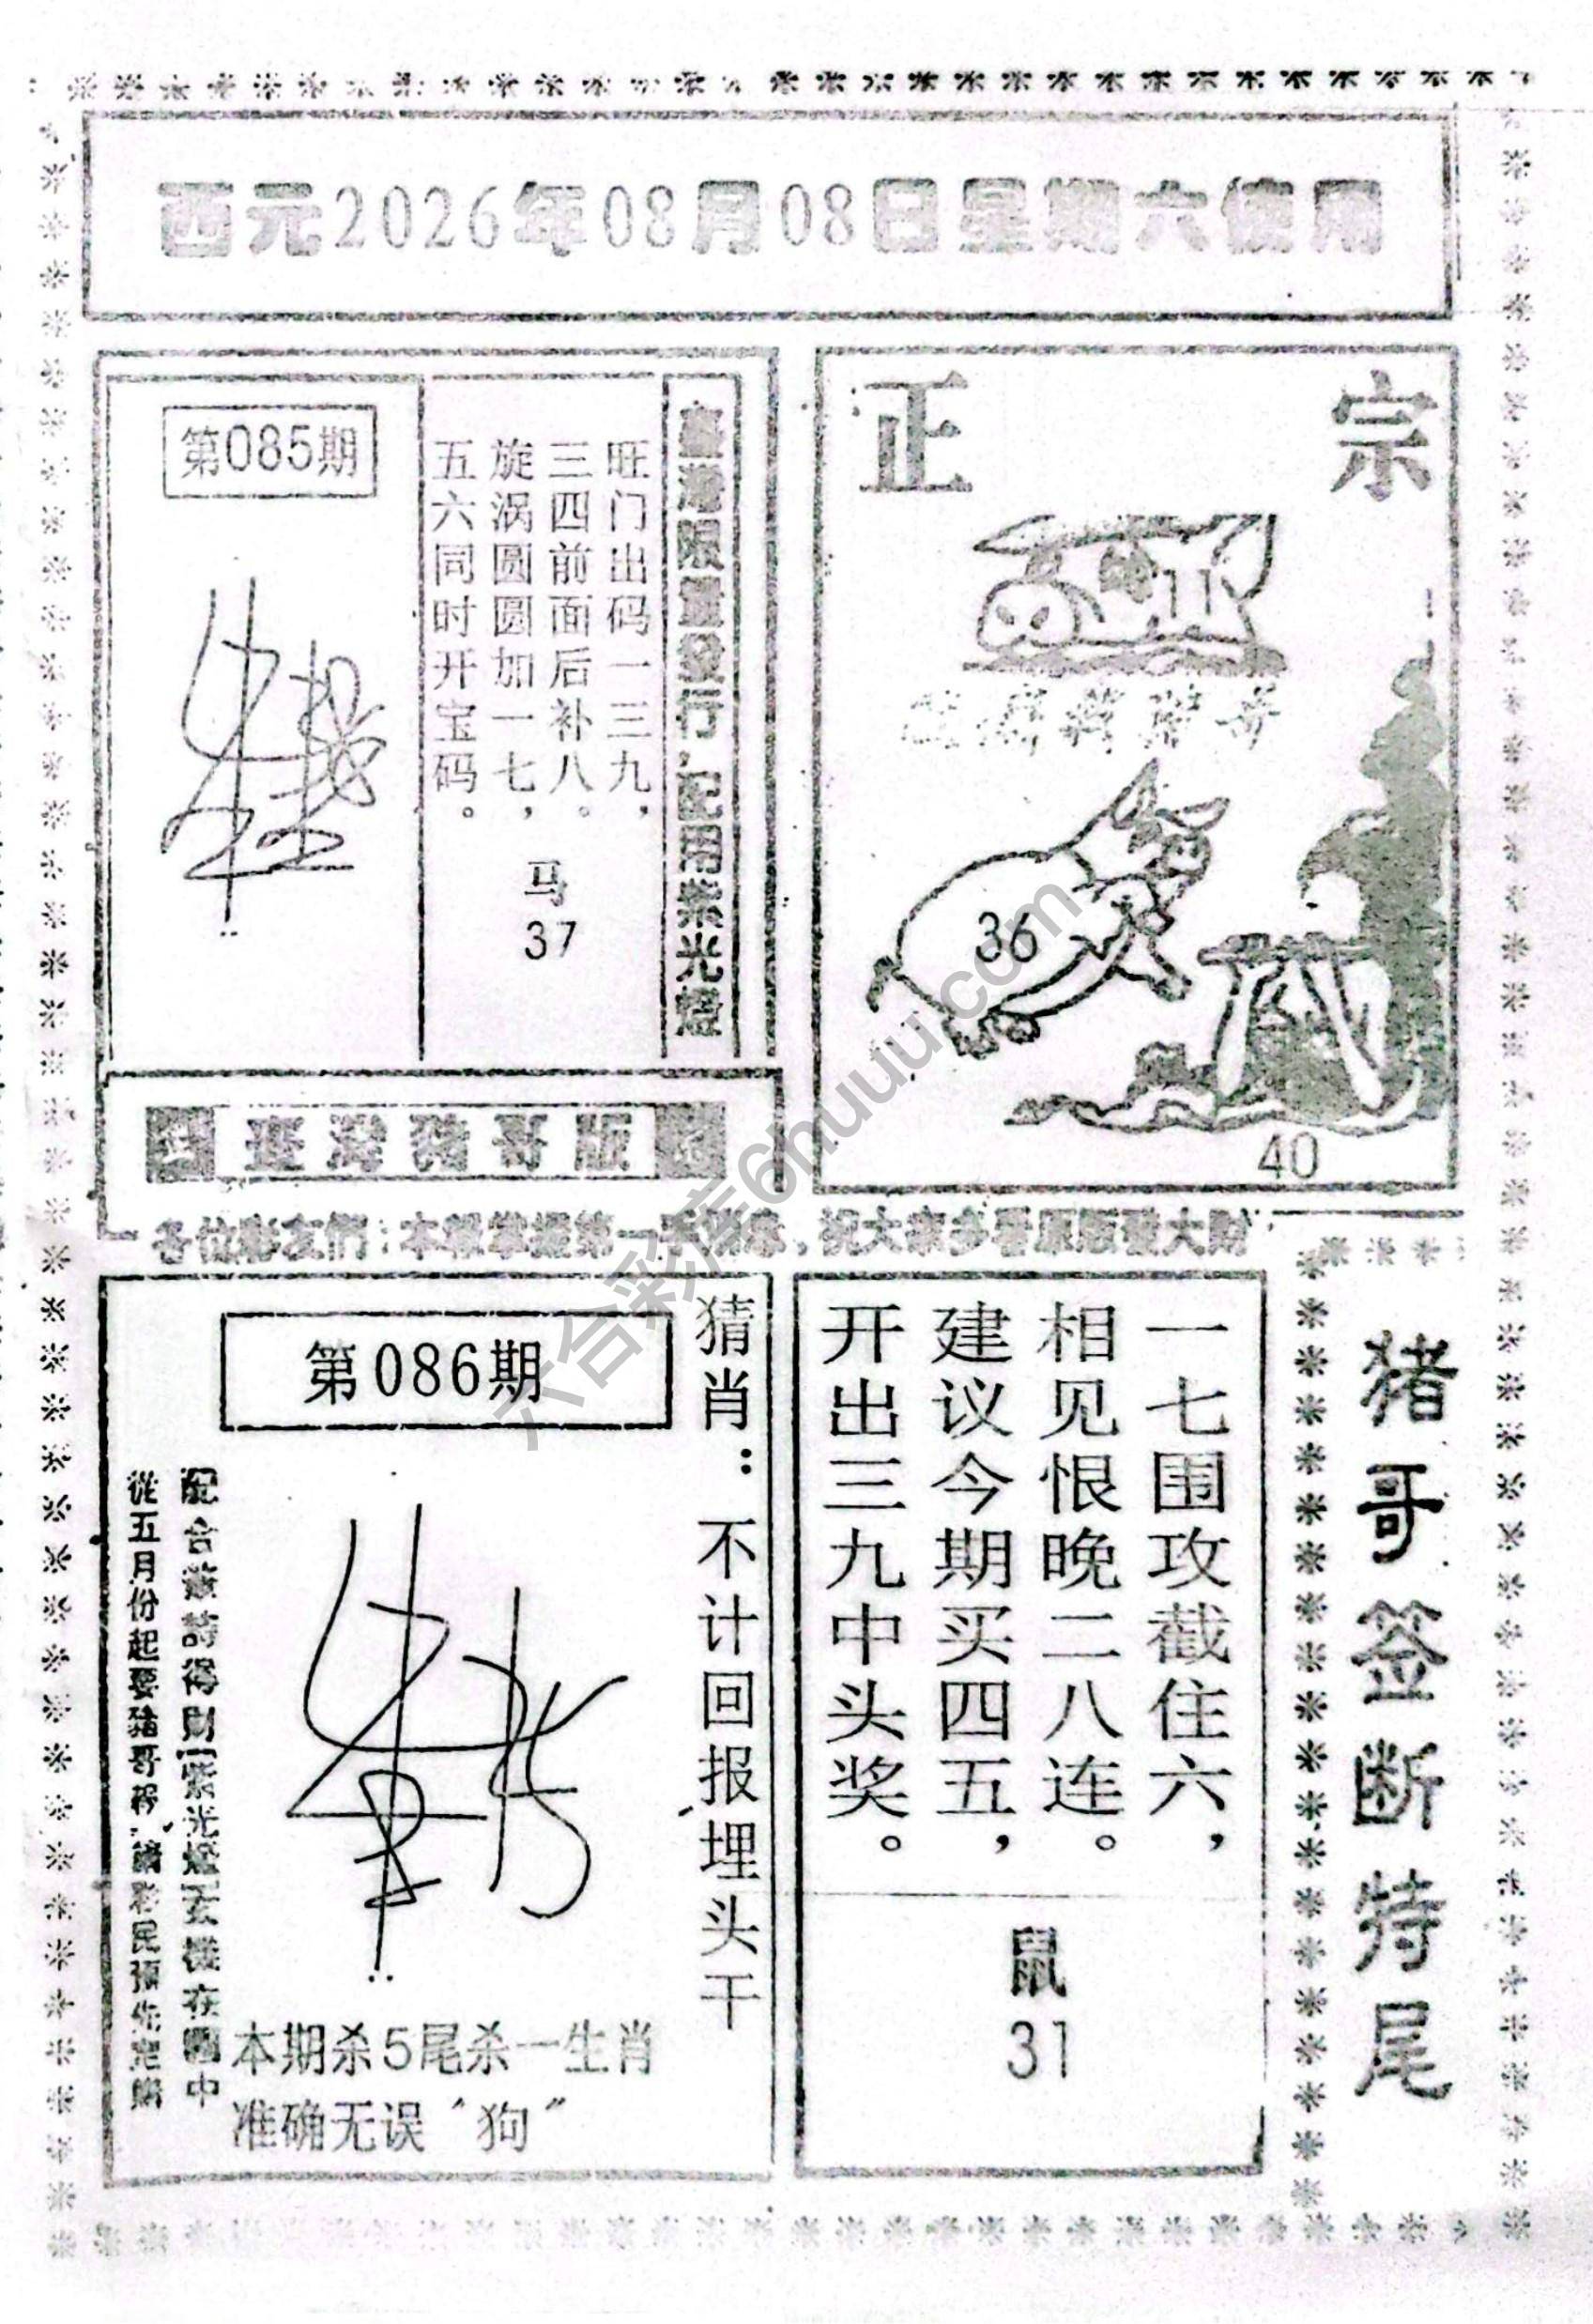 西元2026年08月08日星期六使用
第085期
旺门出码一三九，
三四前面后补八。
旋涡圆圆加一七，
五六同时开宝码。
马
37
臺灣限量發行，配用紫光燈
正宗
11
36
40
臺灣豬哥版
各位彩友們：本報掌握第一手消息，祝大家多看原版發大財
第086期
猜肖：不计回报埋头干
配合籤詩得則紫光燈玄機在圖中
從五月份起要豬哥報，請彩民預先定購
本期杀5尾杀一生肖
准确无误〝狗〞
一七围攻截住六，
相见恨晚二八连。
建议今期买四五，
开出三九中头奖。
鼠
31
猪哥签断特尾
六合彩库6huuu.com